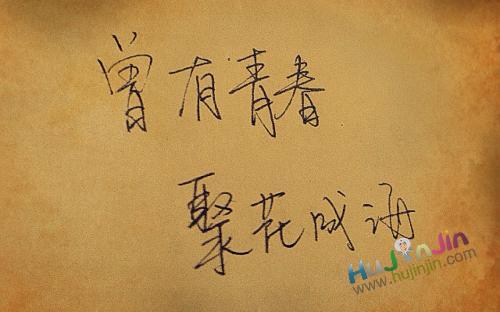 曾有青春
聚花成海
HuJinJin
www.hujinjin.com